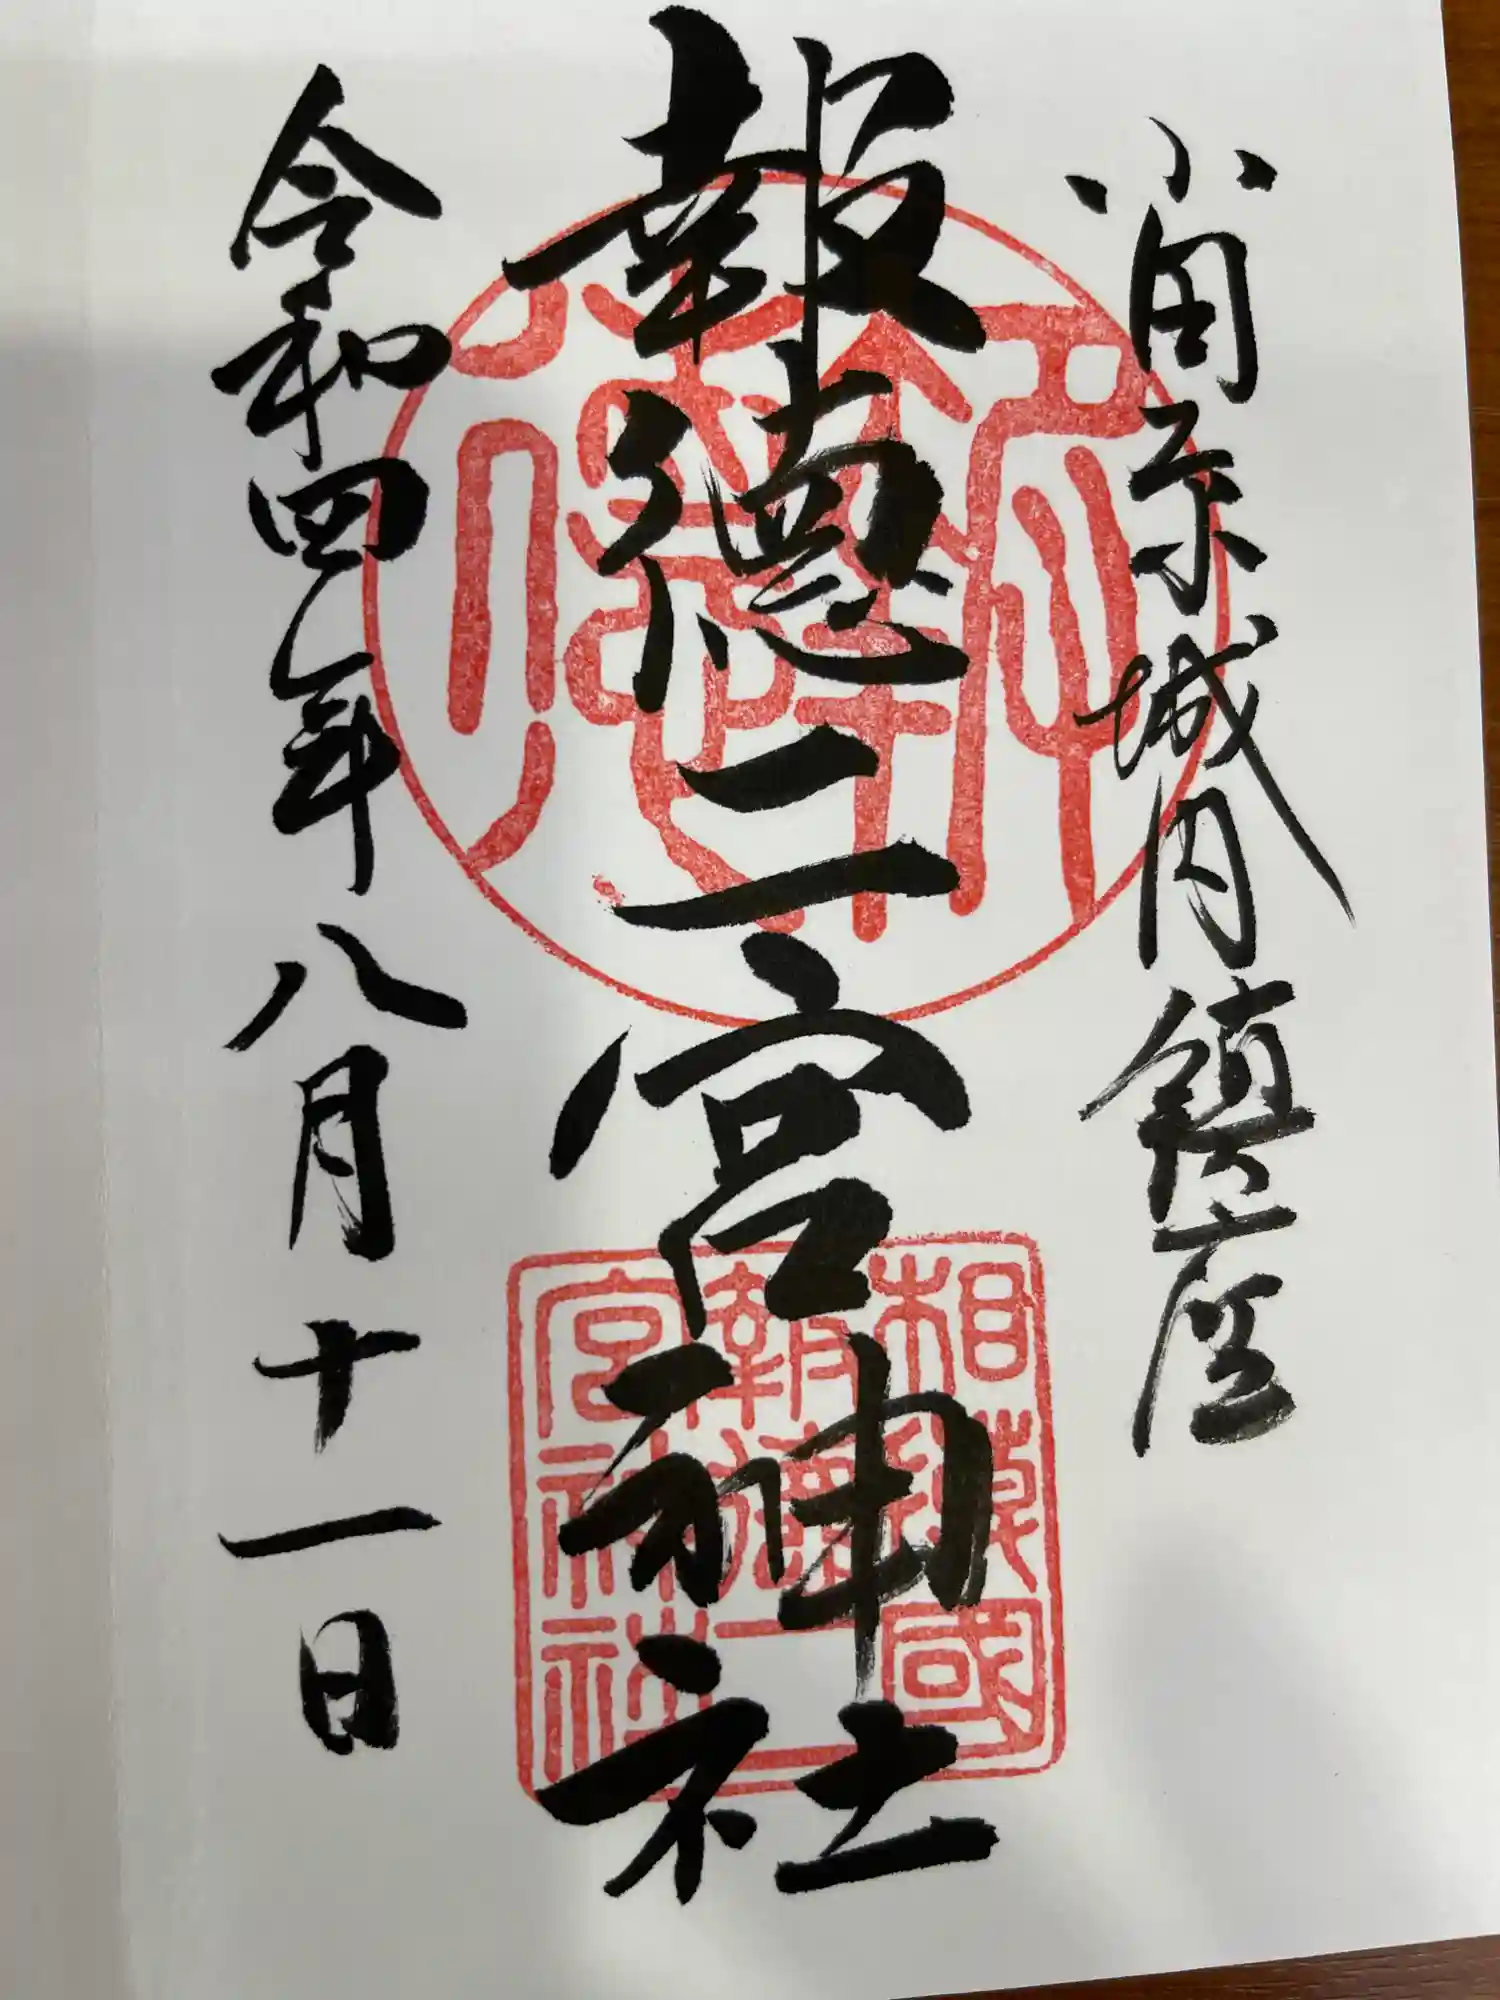 小田原城内鎮座
報徳二宮神社
令和四年八月十一日
相模國
報徳二
宮神社